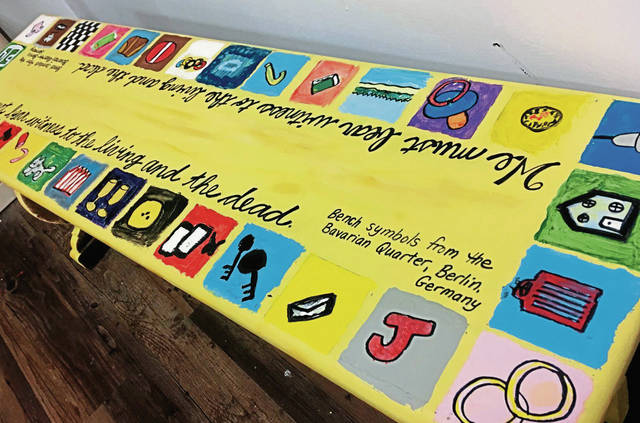 We must bear witness to the living and the dead.
bear witness to the living and the dead.
Bench symbols from the
Bavarian Quarter, Berlin,
Germany
J